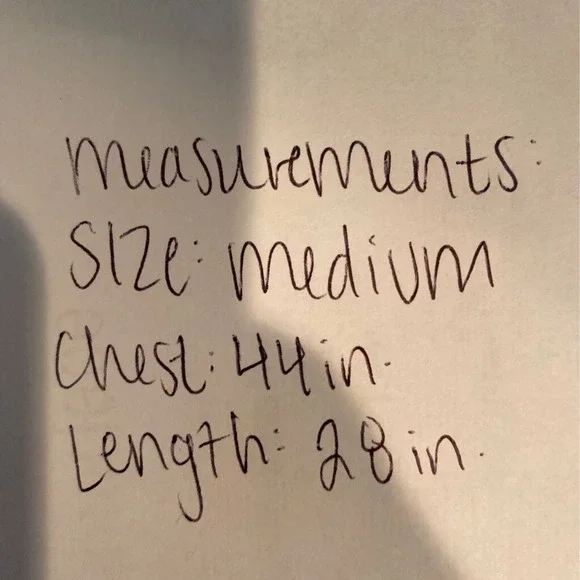 measurements:
Size: medium
Chest: 44 in.
Length: 28 in.